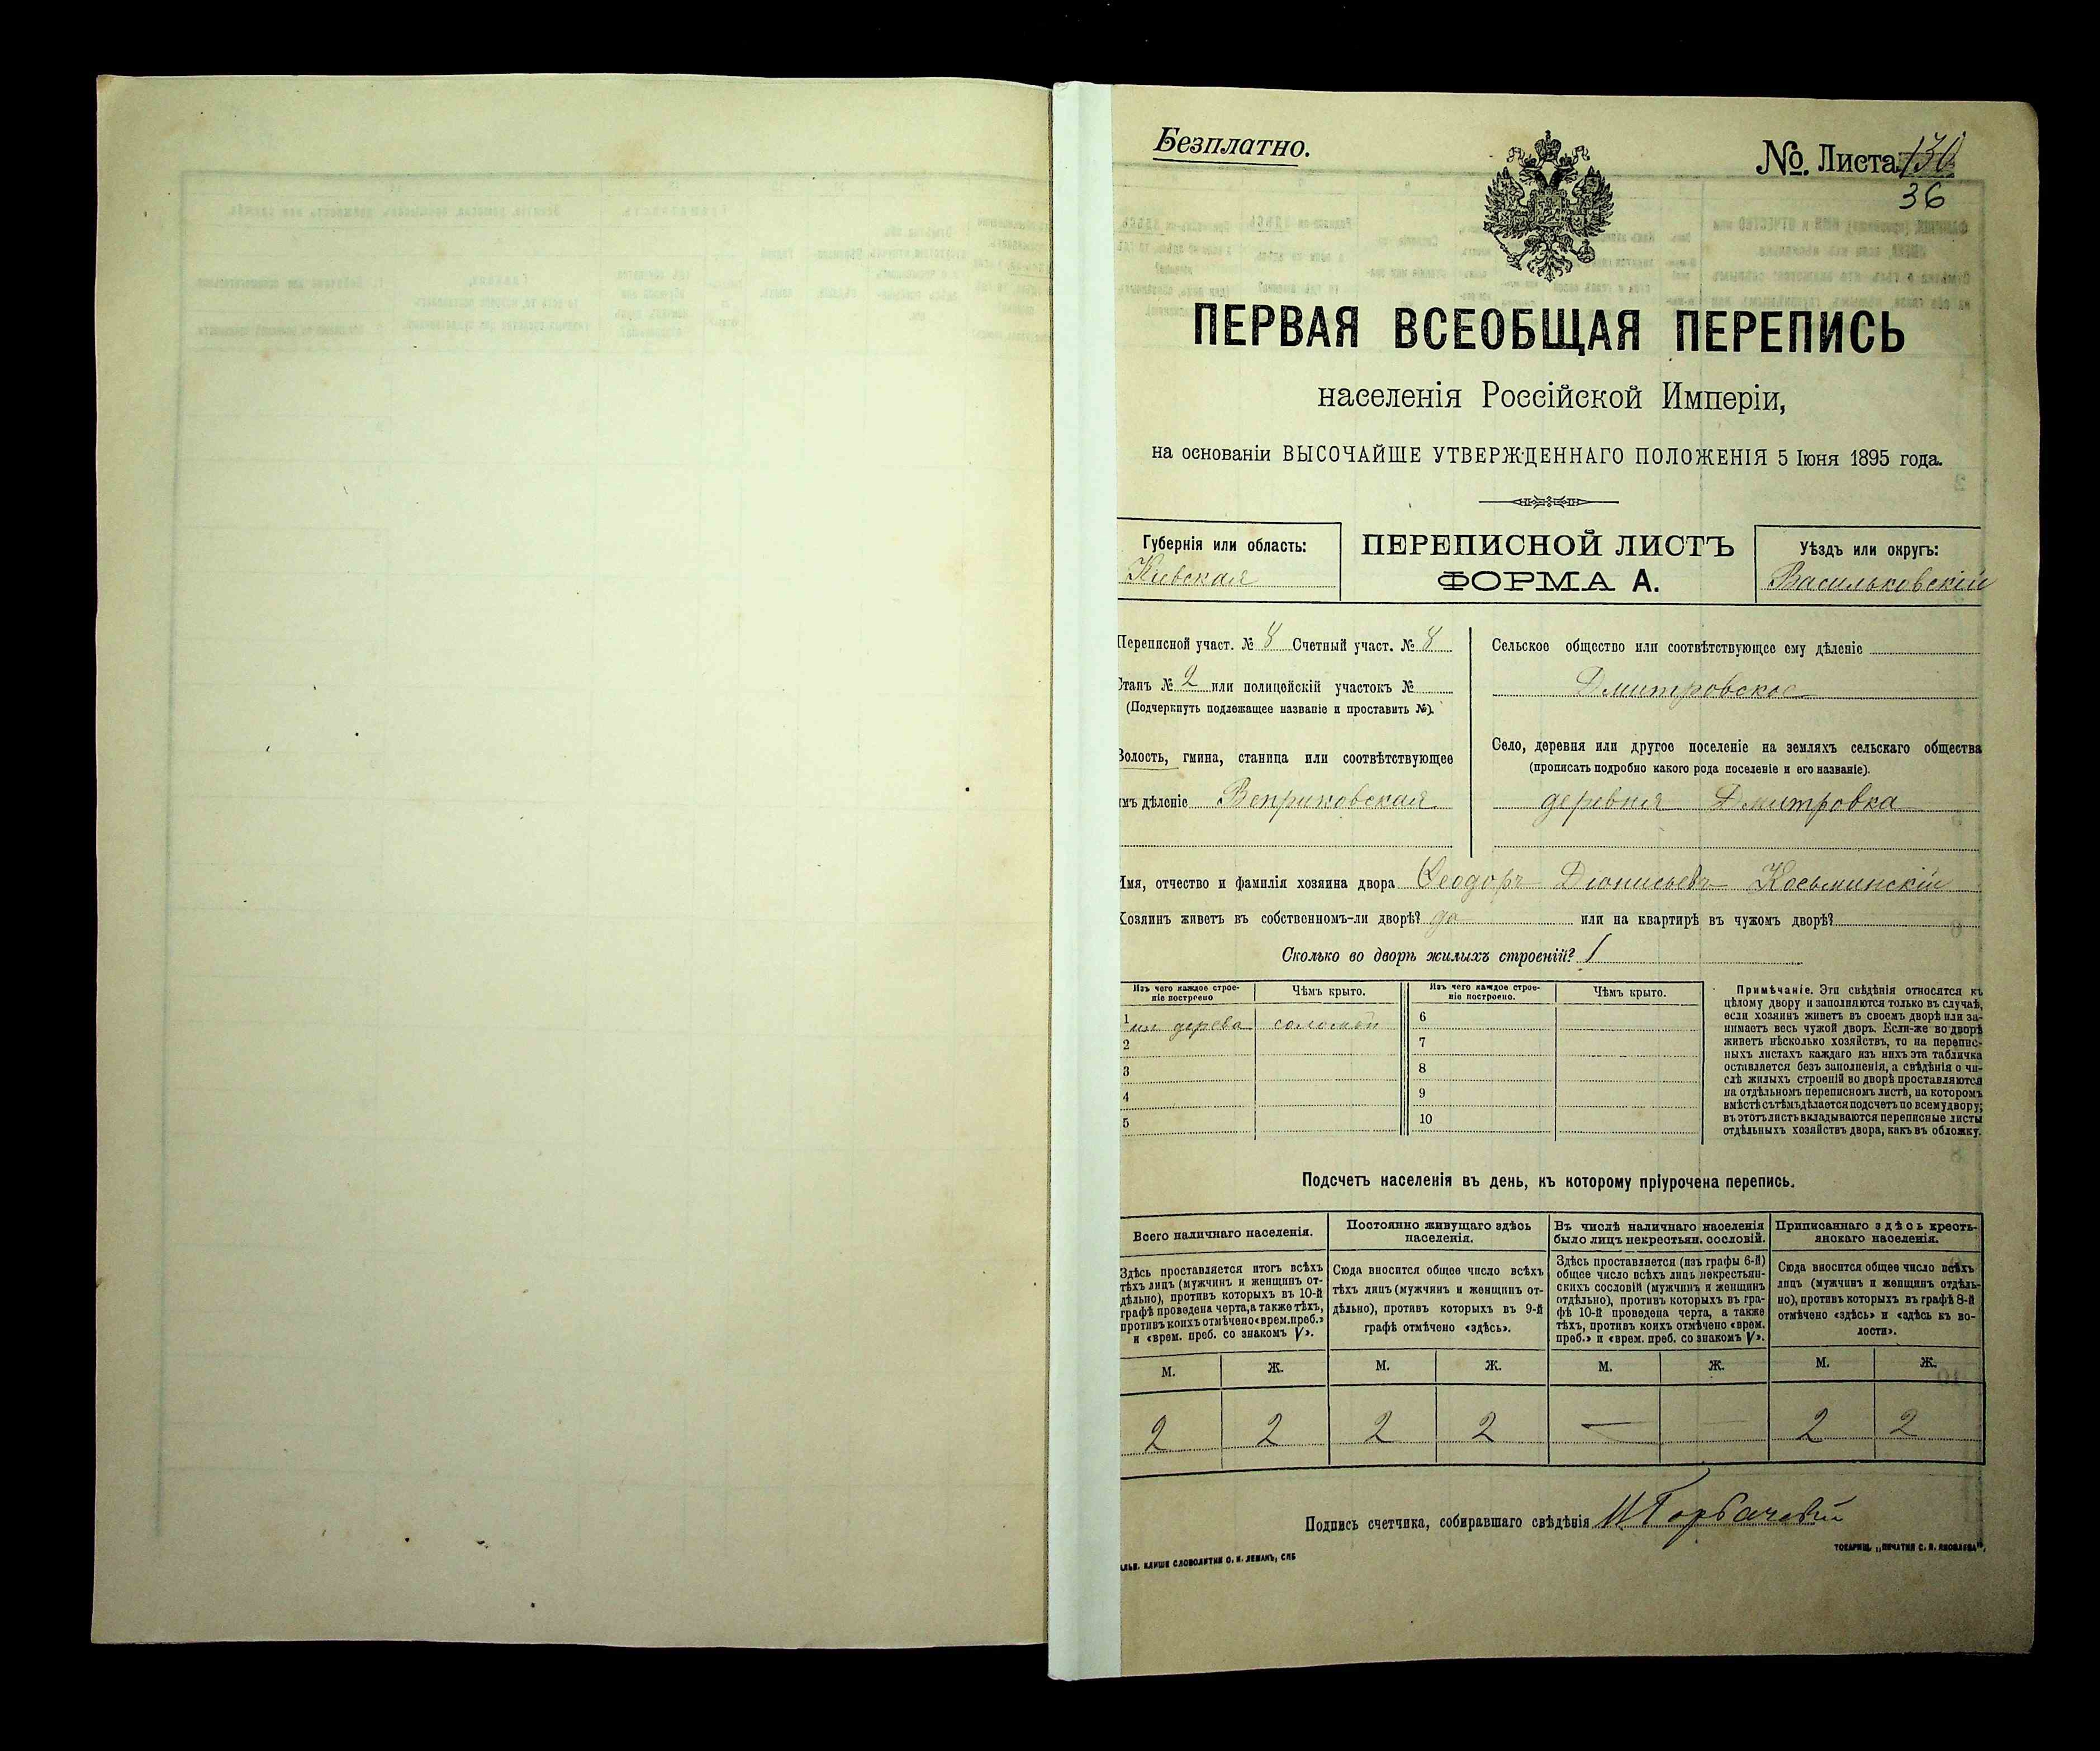 Безплатно.
№. Листа 130
36
ПЕРВАЯ ВСЕОБЩАЯ ПЕРЕПИСЬ
населенія Россійской Имперіи,
на основаніи ВЫСОЧАЙШЕ УТВЕРЖДЕННАГО ПОЛОЖЕНІЯ 5 Іюня 1895 года.
Губернія или область:
Киевская
ПЕРЕПИСНОЙ ЛИСТЪ
ФОРМА А.
Уѣздъ или округъ:
Васильковскій
Переписной участ. № 8 Счетный участ. № 8
Станъ № 2 или полицейскій участокъ №
(Подчеркнуть подлежащее названіе и проставить №).
Волость, гмина, станица или соотвѣтствующее
имъ дѣленіе Веприковская
Сельское общество или соотвѣтствующее ему дѣленіе
Дмитровское
Село, деревня или другое поселеніе на земляхъ сельскаго общества
(прописать подробно какого рода поселеніе и его названіе).
деревня Дмитровка
Имя, отчество и фамилія хозяина двора Ѳеодоръ Діонисьевъ Косьминскій
Хозяинъ живетъ въ собственномъ-ли дворѣ? да или на квартирѣ въ чужомъ дворѣ?
Сколько во дворѣ жилыхъ строеній? 1
Изъ чего каждое строе-
ніе построено
Чѣмъ крыто.
Изъ чего каждое строе-
ніе построено.
Чѣмъ крыто.
1 из дерева соломой 6
2 7
3 8
4 9
5 10
Примѣчаніе. Эти свѣдѣнія относятся къ
цѣлому двору и заполняются только въ случаѣ,
если хозяинъ живетъ въ своемъ дворѣ или за-
нимаетъ весь чужой дворъ. Если-же во дворѣ
живетъ нѣсколько хозяйствъ, то на перепис-
ныхъ листахъ каждаго изъ нихъ эта табличка
оставляется безъ заполненія, а свѣдѣнія о чи-
слѣ жилыхъ строеній во дворѣ проставляются
на отдѣльномъ переписномъ листѣ, на которомъ
вмѣстѣ съ тѣмъ дѣлается подсчетъ по всему двору;
въ этотъ листъ вкладываются переписные листы
отдѣльныхъ хозяйствъ двора, какъ въ обложку.
Подсчетъ населенія въ день, къ которому пріурочена перепись.
Всего наличнаго населенія.
Здѣсь проставляется итогъ всѣхъ
тѣхъ лицъ (мужчинъ и женщинъ от-
дѣльно), противъ которыхъ въ 10-й
графѣ проведена черта, а также тѣхъ,
противъ коихъ отмѣчено «врем. преб.»
и «врем. преб. со знакомъ V».
Постоянно живущаго здѣсь
населенія.
Сюда вносится общее число всѣхъ
тѣхъ лицъ (мужчинъ и женщинъ от-
дѣльно), противъ которыхъ въ 9-й
графѣ отмѣчено «здѣсь».
Въ числѣ наличнаго населенія
было лицъ некрестьян. сословій.
Здѣсь проставляется (изъ графы 6-й)
общее число всѣхъ лицъ некрестьян-
скихъ сословій (мужчинъ и женщинъ
отдѣльно), противъ которыхъ въ гра-
фѣ 10-й проведена черта, а также
тѣхъ, противъ коихъ отмѣчено «врем.
преб.» и «врем. преб. со знакомъ V».
Приписаннаго здѣсь кресть-
янскаго населенія.
Сюда вносится общее число всѣхъ
лицъ (мужчинъ и женщинъ отдѣль-
но), противъ которыхъ въ графѣ 8-й
отмѣчено «здѣсь» и «здѣсь къ во-
лости».
М. Ж. М. Ж. М. Ж. М. Ж.
2 2 2 2 — — 2 2
Подпись счетчика, собиравшаго свѣдѣнія
КЛИШЕ СЛОВОЛИТНИ О. И. ЛЕМАНЪ, СПБ
ТОВАРИЩ. „ПЕЧАТНЯ С. П. ЯКОВЛЕВА“,